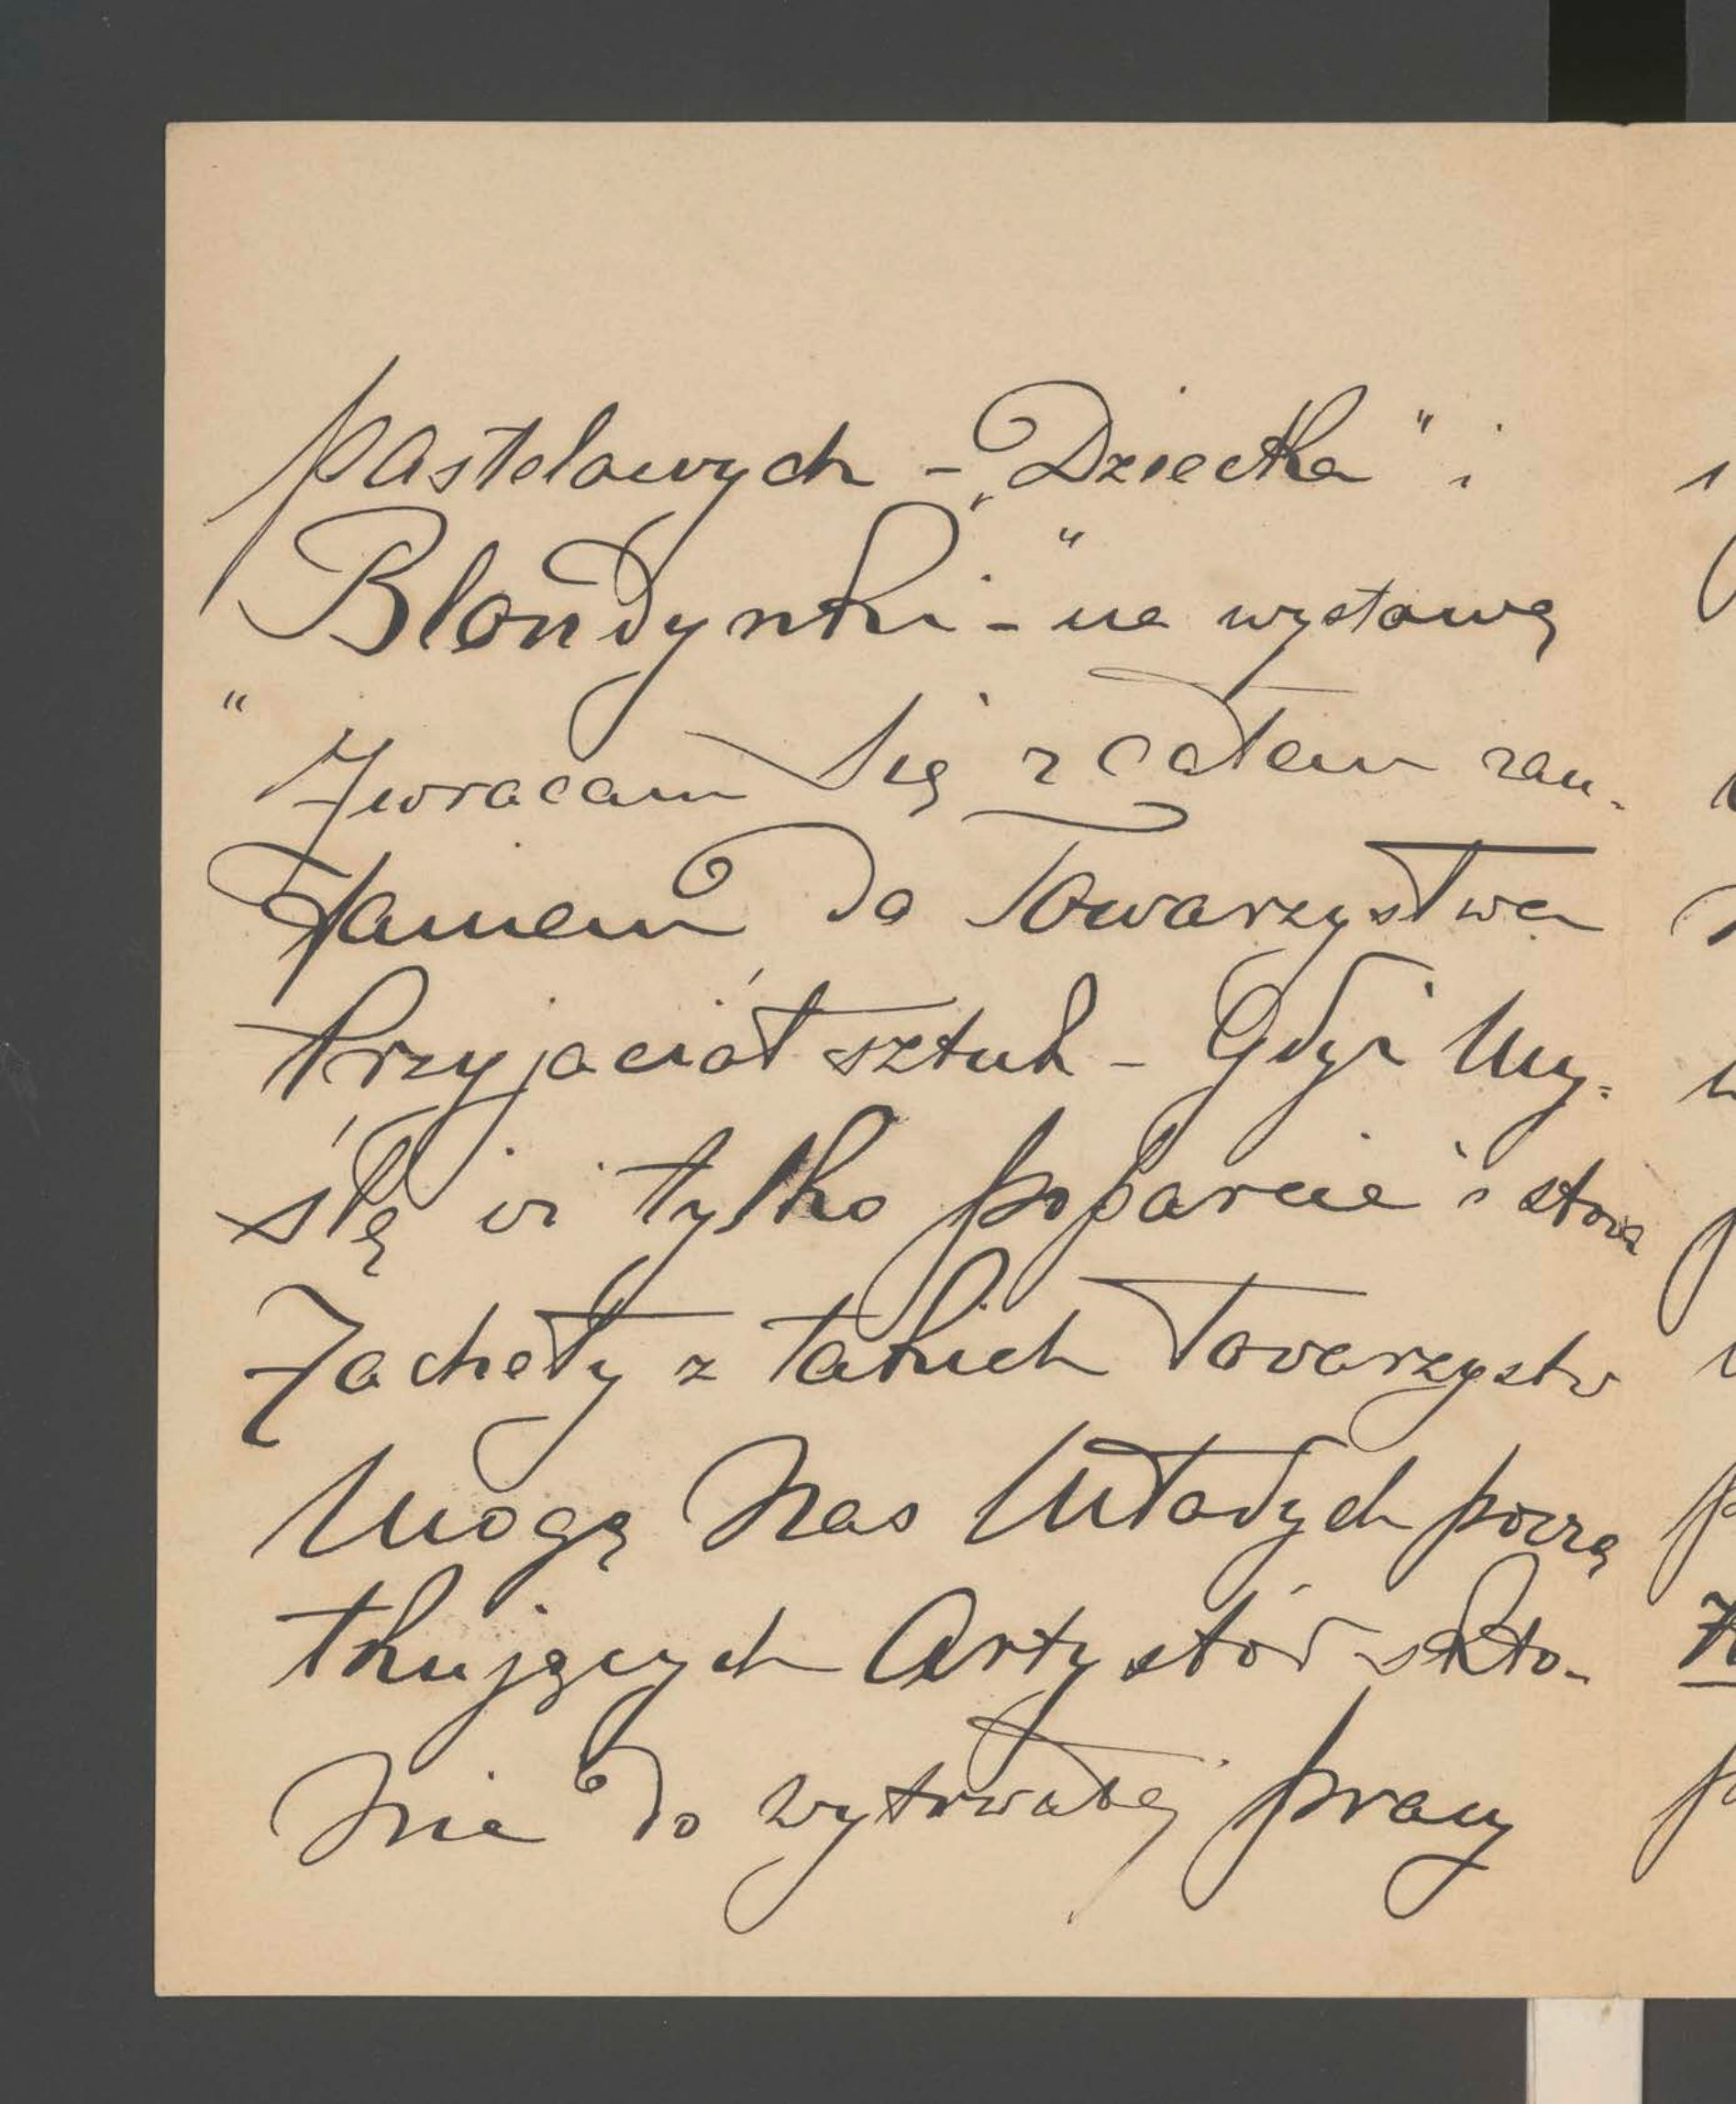 pastelowych - „Dziecka" i
Blondynki" - na wystawę
" Zwracam się z całem zau-
faniem do Towarzystwa
Przyjaciół sztuk - Gdyż my-
ślę iż tylko poparcie i słowa
Zachęty z takich Towarzystw
Mogą nas Młodych począ
tkujących Artystów skło-
nić do wytrwałej pracy